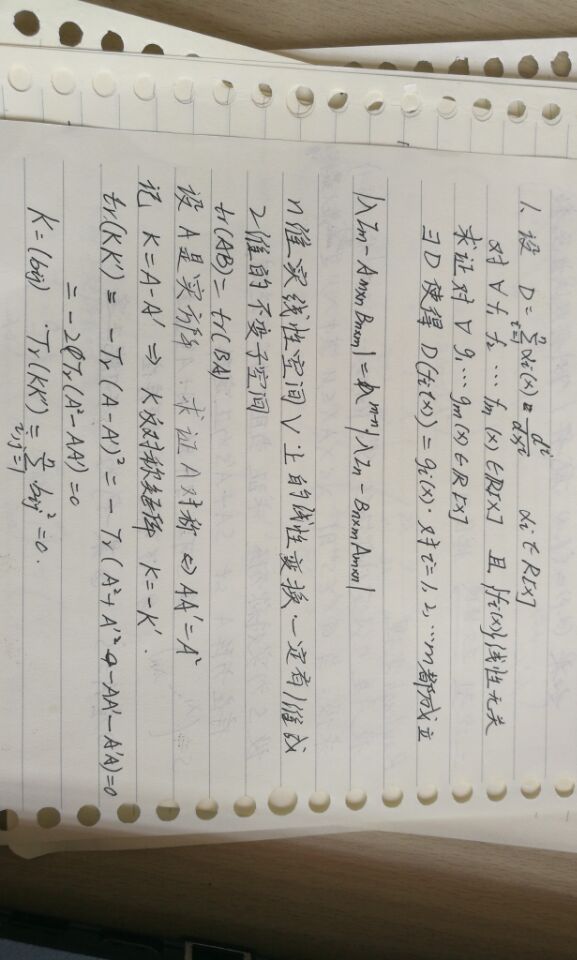 1. 设 D = Σ_{i=1}^{n} α_i(x) d^i/dx^i   α_i ∈ R[x]
对 ∀ f_1 f_2 … f_m(x) ∈ R[x] 且 {f_i(x)} 线性无关
求证对 ∀ g_1 … g_m(x) ∈ R[x]
∃ D 使得 D(f_i(x)) = g_i(x). 对 i = 1, 2, … m 都成立
|λI_m - A_{m×n}B_{n×m}| = λ^{m-n}|λI_n - B_{n×m}A_{m×n}|
n维实线性空间V上的线性变换. 一定有1维或
2维的不变子空间
tr(AB) = tr(BA)
设A是实方阵 求证A对称 ⇔ AA' = A²
记 K = A - A' ⇒ K反对称 K = -K'.
tr(KK') = -Tr(A-A')² = -Tr(A² + A'² - AA' - A'A) = 0
= -2Tr(A² - AA') = 0
K = (b_{ij}) . Tr(KK') = Σ_{i,j=1}^{n} b_{ij}² = 0.